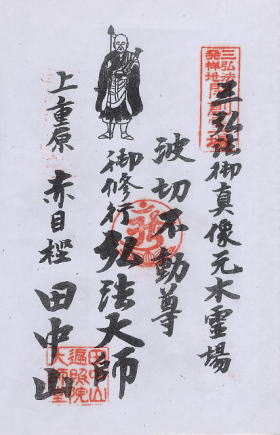 三弘法御真像元木霊場
波切不動尊
御修行弘法大師
上重原
赤目樫
田中山
三弘法
発祥地
田中山
遍照院
大師堂